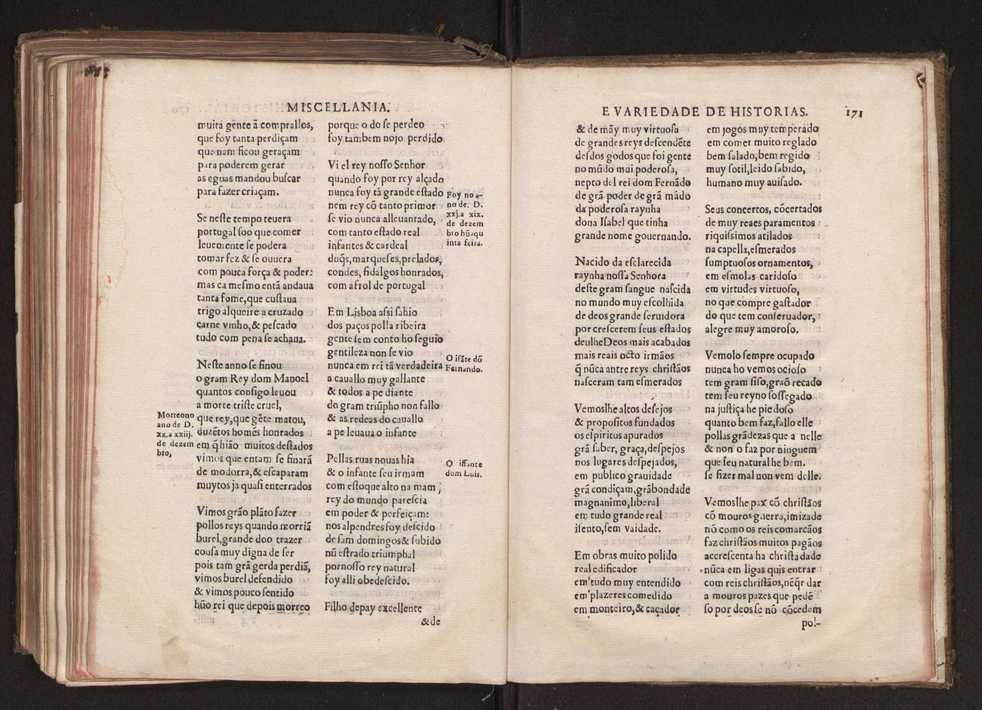 MISCELLANIA.
muita gẽte ã comprallos,
que foy tanta perdiçam
que nam ficou geraçam
para poderem gerar
as eguas mandou buscar
para fazer criaçam.
Se neste tempo teuera
portugal soo que comer
leuemente se podera
tomar fez & se ouuera
com pouca força & poder:
mas ca mesmo entã andaua
tanta fome, que custaua
trigo alqueire a cruzado
carne vinho, & pescado
tudo com pena se achaua.
Neste anno se finou
o gram Rey dom Manoel
quantos consigo leuou
a morte triste cruel,
que rey, que gẽte matou,
duzẽtos homẽs honrados
em q̃ hião muitos destados
vimos que entam se finarã
de modorra, & escaparam
muytos ja quasi enterrados
Morreo no
ano de D.
xx.a xxiij.
de dezem
bro,
Vimos grão plãto fazer
pollos reys quando morriã
burel, grande doo trazer
cousa muy digna de ser
pois tam grã gerda perdiã,
vimos burel defendido
& vimos pouco sentido
hũo rei que depois morreo
porque o do se perdeo
foy tambem nojo perdido
Vi el rey nosso Senhor
quando foy por rey alçado
nunca foy tã grande estado
nem rey cõ tanto primor
se vio nunca alleuantado,
com tanto estado real
infantes & cardeal
duq̃s, marqueses, prelados,
condes, fidalgos honrados,
com a frol de portugal
Foy no a-
no de. D.
xxj.a xix.
de dezem
bro hũa qu
inta feira.
Em Lisboa assi sahio
dos paços polla ribeira
gente sem conto ho seguio
gentileza non se vio
nunca em rei tã verdadeira
a cauallo muy gallante
& todos a pe diante
do gram triũpho non fallo
& as redeas do cauallo
a pe leuaua o infante
O ifãte dõ
Fernando.
Pellas ruas nouas hia
& o infante seu irmam
com estoque alto na mam,
rey do mundo parescia
em poder & perfeiçam:
nos alpendres foy descido
de sam domingos & subido
nũ estrado triumphal
por nosso rey natural
foy alli obedescido.
O iffante
dom Luis.
Filho de pay excellente
& de
E VARIEDADE DE HISTORIAS.
171
& de mãy muy virtuosa
de grandes reys descendẽte
desdos godos que foi gente
no mũdo mui poderosa,
nepto del rei dom Fernãdo
de grã poder de grã mãdo
da poderosa raynha
dona Isabel que tinha
grande nome gouernando.
Nacido da esclarecida
raynha nossa Senhora
deste gram sangue nascida
no mundo muy escolhida
de deos grande seruidora
por crescerem seus estados
deulhe Deos mais acabados
mais reais octo irmãos
q̃ nũca antre reys christãos
nasceram tam esmerados
Vemoslhe altos desejos
& propositos fundados
os espiritus apurados
grã saber, graça, despejos
nos lugares despejados,
em publico grauidade
grã condiçam, grã bondade
magnanimo, liberal
em tudo grande real
isento, sem vaidade.
Em obras muito polido
real edificador
em tudo muy entendido
em plazeres comedido
em monteiro, & caçador
em jogos muy temperado
em comer muito reglado
bem falado, bem regido
muy sotil, leido sabido,
humano muy auisado.
Seus concertos, cõcertados
de muy reaes paramentos
riquissimos atilados
na capella, esmerados
sumptuosos ornamentos,
em esmolas caridoso
em virtudes virtuoso,
no que compre gastador
do que tem conseruador,
alegre muy amoroso.
Vemolo sempre ocupado
nunca ho vemos ocioso
tem gram siso, grão recado
tem seu reyno sossegado
na justiça he piedoso
quanto bem faz, fallo elle
pollas grãdezas que a nelle
& non o faz por ninguem
que seu natural he bem.
se fizer mal non vem delle.
Vemoslhe paz cõ christãos
cõ mouros guerra, imizade
nõ como os reis comarcãos
faz christãos muitos pagãos
accrescenta ha christãdade
nũca em ligas quis entrar
com reis christãos, nẽ q̃r dar
a mouros pazes que pedẽ
so por deos se nõ cõcedem
pol-